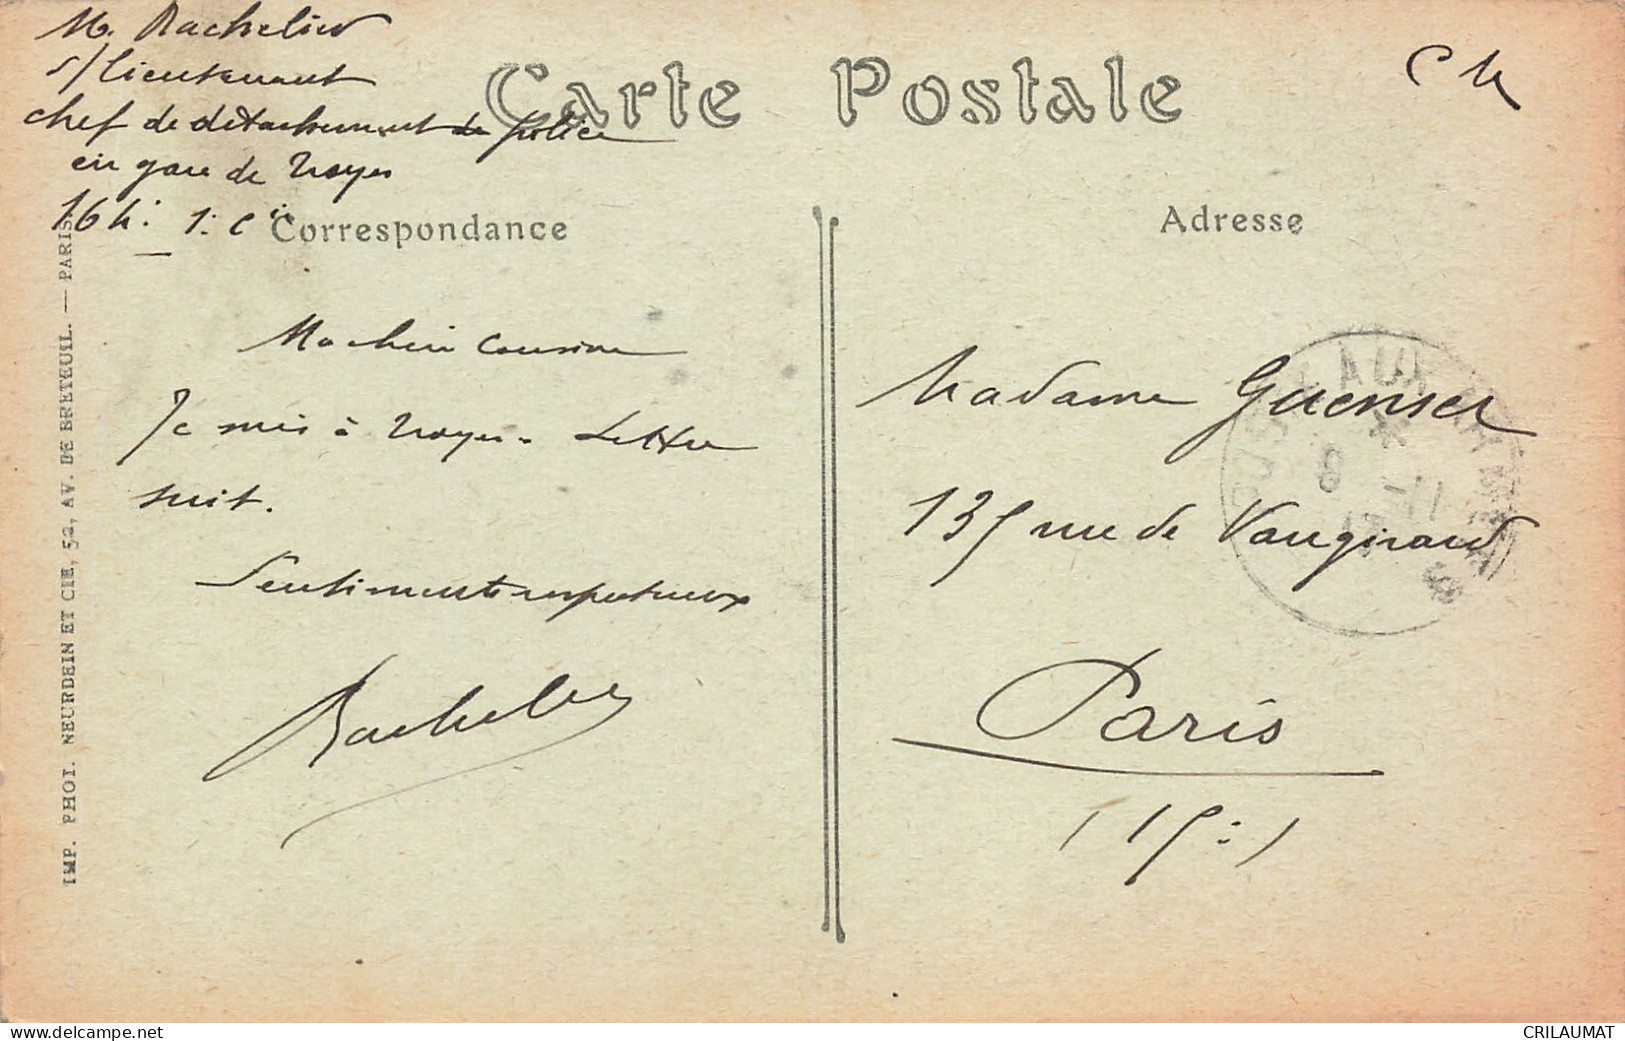 M. Rachelier
s/lieutenant
chef de détachement de police
en gare de Troyes
16 h. 1. Cie
C M
Carte Postale
Correspondance
Adresse
Ma chère cousine
Je suis à Troyes. Lettre
suit.
Sentiments respectueux
Rachelier
Madame Guenser
135 rue de Vaugirard
Paris
(15:)
IMP. PHOT. NEURDEIN ET CIE, 52, AV. DE BRETEUIL. — PARIS
delcampe.net
CRILAUMAT